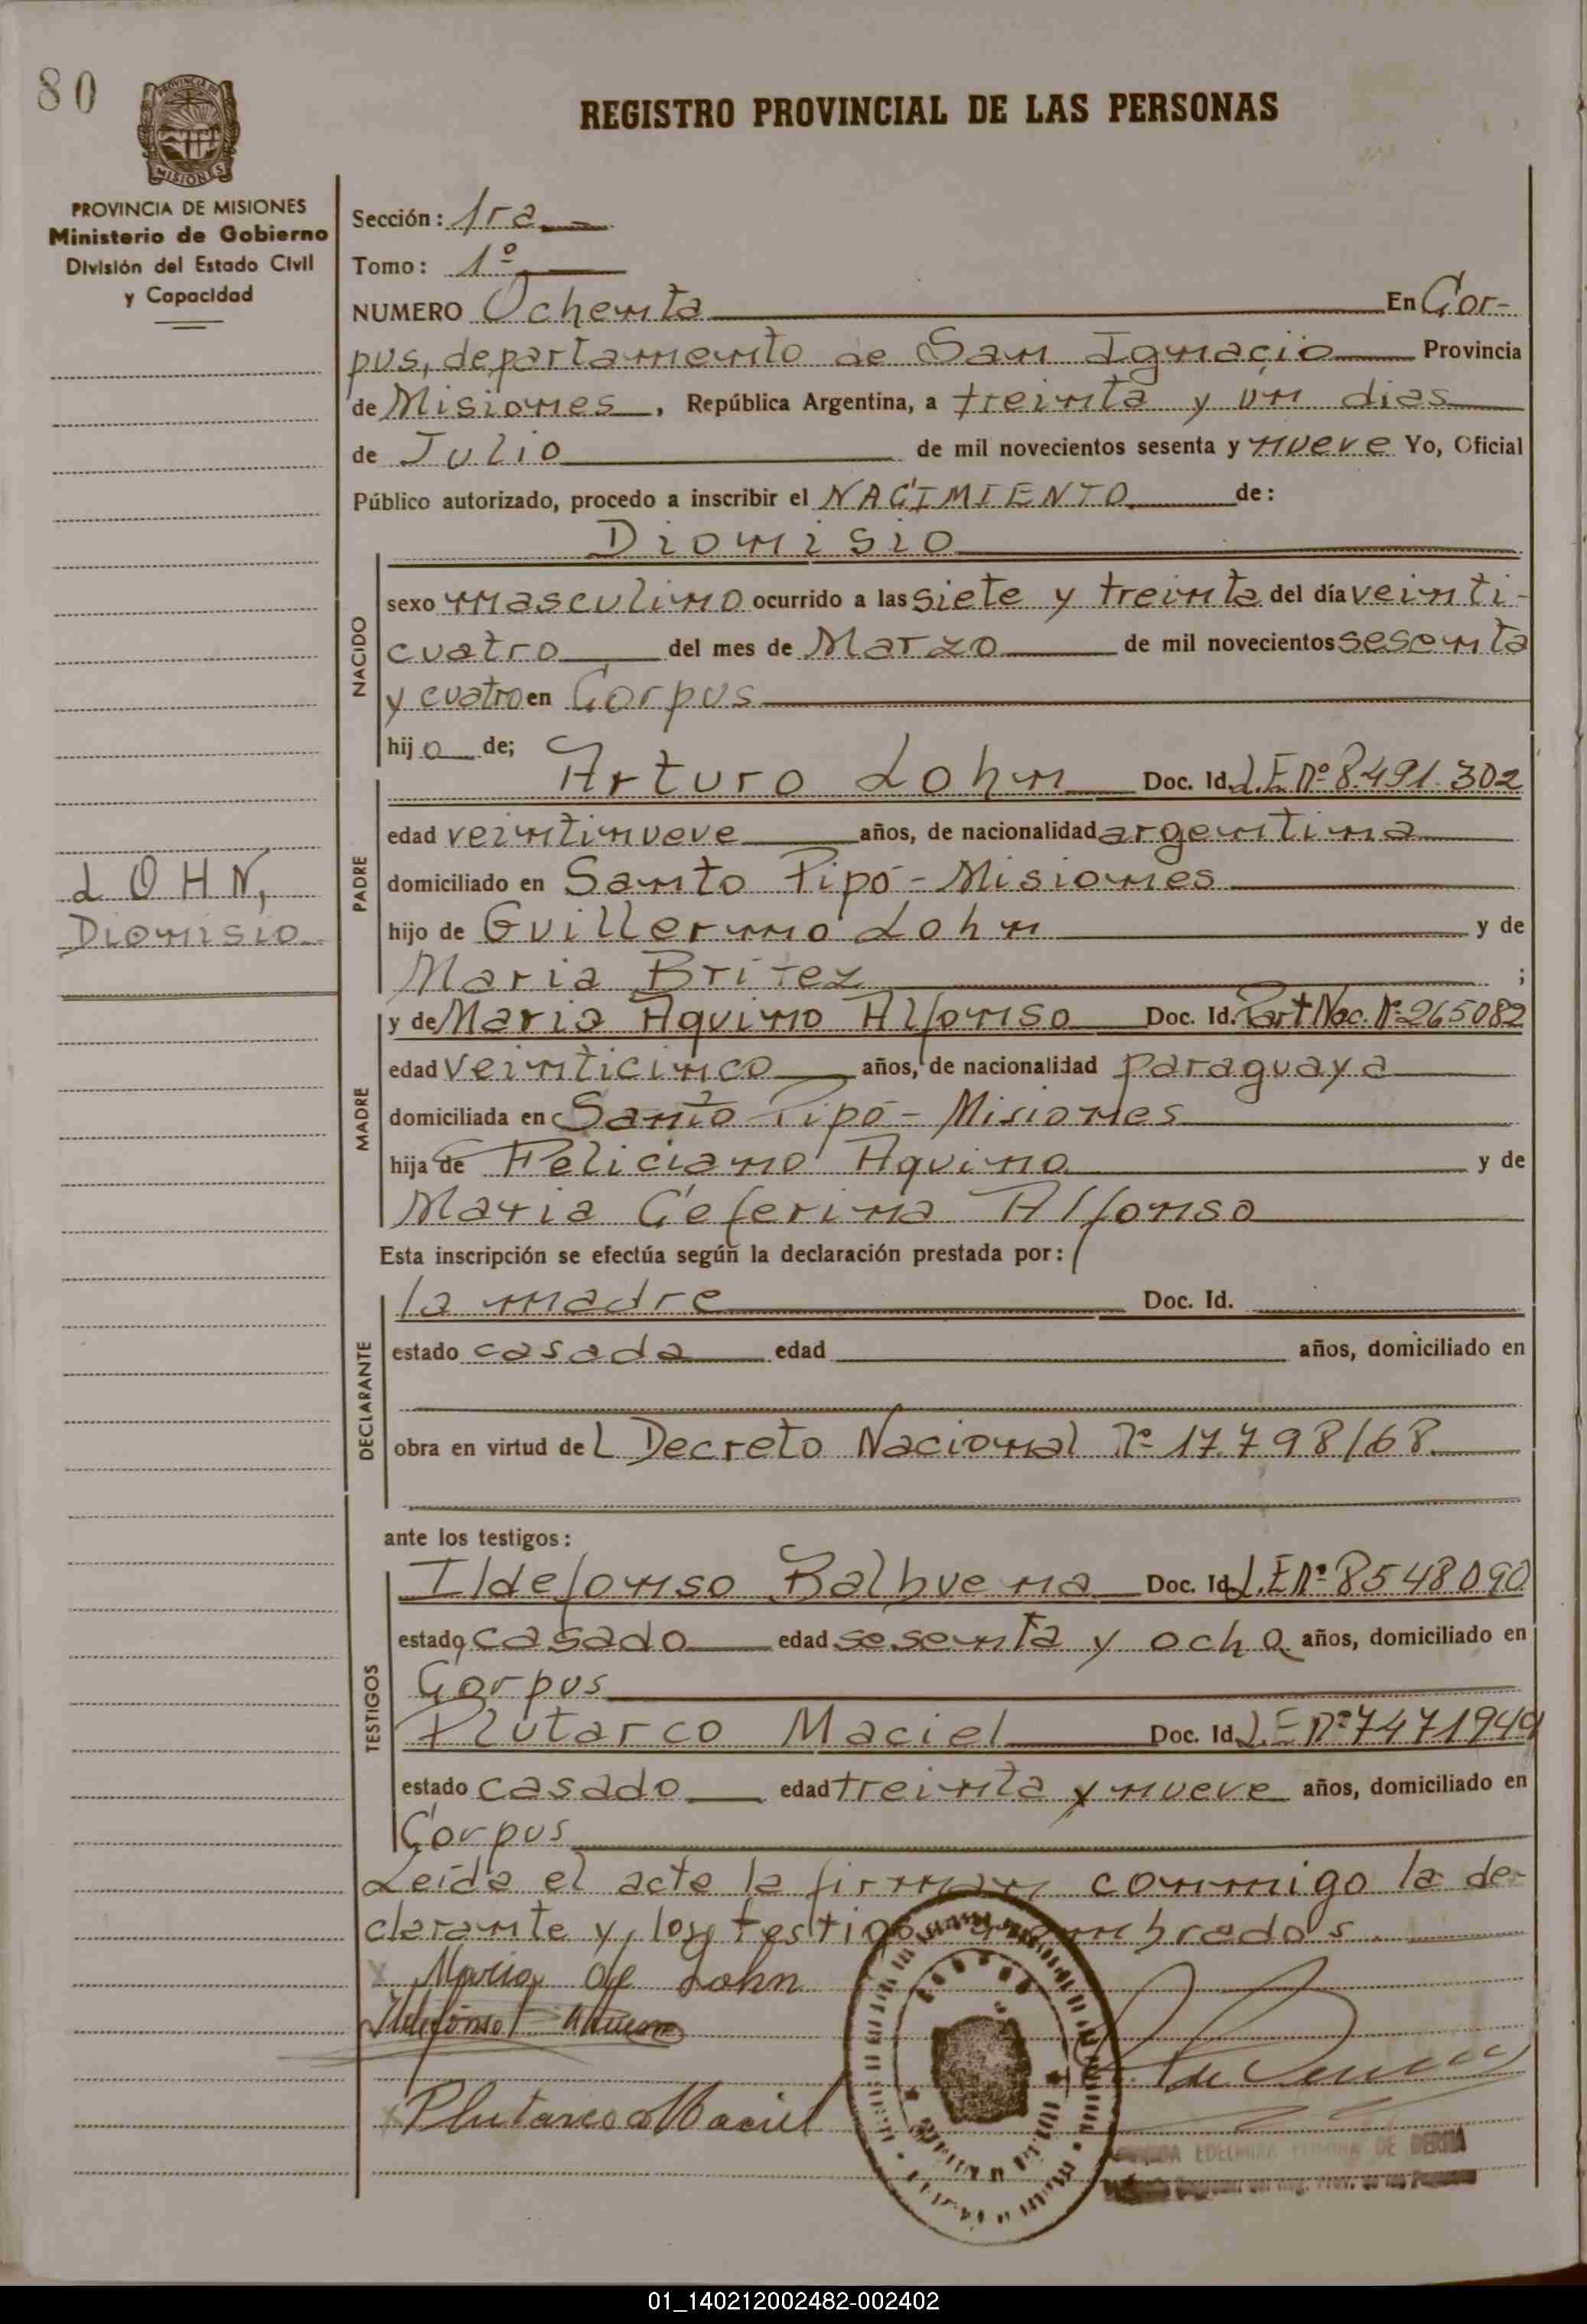 80
PROVINCIA DE MISIONES
Ministerio de Gobierno
División del Estado Civil
y Capacidad
LOHN,
Dionisio
REGISTRO PROVINCIAL DE LAS PERSONAS
Sección: 1ra
Tomo: 1º
NUMERO Ochenta En Cor-
pus, departamento de San Ignacio Provincia
de Misiones, República Argentina, a treinta y un dias
de Julio de mil novecientos sesenta y nueve Yo, Oficial
Público autorizado, procedo a inscribir el NACIMIENTO de:
Dionisio
NACIDO
sexo masculino ocurrido a las siete y treinta del día veinti-
cuatro del mes de Marzo de mil novecientos sesenta
y cuatro en Corpus
hijo de;
PADRE
Arturo Lohn Doc. Id. L.E.Nº 8.491.302
edad veintinueve años, de nacionalidad argentina
domiciliado en Santo Pipó - Misiones
hijo de Guillermo Lohn y de
Maria Britez ;
MADRE
y de Maria Aquino Alfonso Doc. Id. Part Nac. Nº 265082
edad veinticinco años, de nacionalidad paraguaya
domiciliada en Santo Pipó - Misiones
hija de Feliciano Aquino y de
Maria Ceferina Alfonso
Esta inscripción se efectúa según la declaración prestada por:
DECLARANTE
la madre Doc. Id.
estado casada edad años, domiciliado en
obra en virtud del Decreto Nacional Nº 17.798/68.
ante los testigos:
TESTIGOS
Ildefonso Balbuena Doc. Id. L.E Nº 8548090
estado casado edad sesenta y ocho años, domiciliado en
Corpus
Plutarco Maciel Doc. Id. L.E Nº 7471949
estado casado edad treinta y nueve años, domiciliado en
Corpus
Leída el acta la firman conmigo la de-
clarante y los testigos nombrados.
Maria de Lohn
Ildefonso
Plutarco Maciel
EDELMIRA DE
01_140212002482-002402